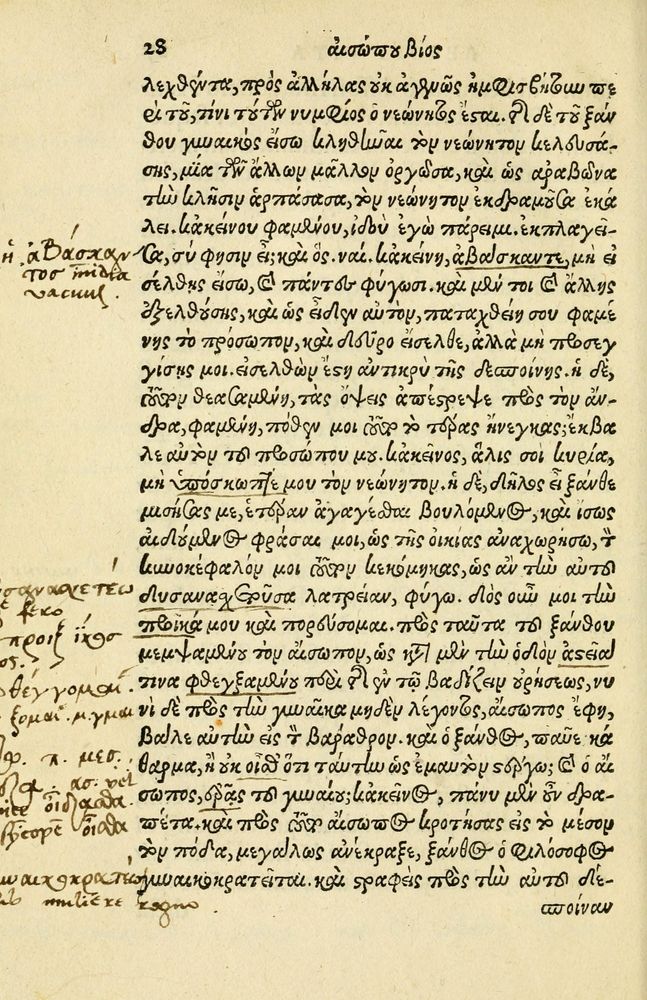 28 αἰσώπου βίος
λεχθέντα, πρὸς ἀλλήλας οὐκ ἀγεννῶς ἠμφισβήτουν πε
ρὶ τοῦ, τίνι τούτων νυμφίος ὁ νεώνητος ἔσται. τῆς δὲ τοῦ ξάν
θου γυναικὸς εἴσω κληθῆναι τὸν νεώνητον κελευσά-
σης, μία τῶν ἄλλων μᾶλλον ὀργῶσα, καὶ ὡς ἀραβῶνα
τὴν κλῆσιν ἁρπάσασα, τὸν νεώνητον ἐκδραμοῦσα ἐκά
λει. κἀκείνου φαμένου, ἰδοὺ ἐγὼ πάρειμι. ἐκπλαγεῖ-
σα, σύ φησιν εἶ; καὶ ὅς. ναί. κἀκείνη, ἀβάσκαντε, μὴ εἰ
σέλθῃς εἴσω, καὶ πάντες φύγωσι. καὶ μέν τοι καὶ ἄλλης
ἐξελθούσης, καὶ ὡς εἶδεν αὐτὸν, παταχθείη σου φαμέ
νης τὸ πρόσωπον, καὶ δεῦρο εἴσελθε, ἀλλὰ μὴ προσεγ
γίσῃς μοι. εἰσελθὼν ἔστη ἀντικρὺ τῆς δεσποίνης. ἡ δὲ,
τοῦτον θεασαμένη, τὰς ὄψεις ἀπέστρεψε πρὸς τὸν ἄν-
δρα, φαμένη, πόθεν μοι τοῦτο τὸ τέρας ἤνεγκας; ἔκβα
λε αὐτὸν τοῦ προσώπου μου. κἀκεῖνος, ἅλις σοι κυρία,
μὴ ὑπόσκωπτέ μου τὸν νεώνητον. ἡ δὲ, δῆλος εἶ ξάνθε
μισήσας με, ἑτέραν ἀγαγέσθαι βουλόμενος, καὶ ἴσως
αἰδούμενος φράσαι μοι, ὡς τῆς οἰκίας ἀναχωρήσω, τὸν
κυνοκέφαλόν μοι τοῦτον κεκόμικας, ὡς ἂν τὴν αὐτοῦ
δυσανασχετοῦσα λατρείαν, φύγω. δὸς οὖν μοι τὴν
προῖκά μου καὶ πορεύσομαι. πρὸς ταῦτα τοῦ ξάνθου
μεμψαμένου τὸν αἴσωπον, ὡς κατὰ μὲν τὴν ὁδὸν ἀστεῖά
τινα φθεγξαμένου περὶ τῆς ἐν τῷ βαδίζειν οὐρήσεως, νυ
νὶ δὲ πρὸς τὴν γυναῖκα μηδὲν λέγοντος, αἴσωπος ἔφη,
βάλε αὐτὴν εἰς τὸ βάραθρον. καὶ ὁ ξάνθος, παῦε κά
θαρμα, ἢ οὐκ οἶσθ' ὅτι ταύτην ὡς ἐμαυτὸν στέργω; καὶ ὁ αἴ
σωπος, ἐρᾷς τοῦ γυναίου; κἀκεῖνος, πάνυ μὲν οὖν δρα-
πέτα. καὶ πρὸς τοῦτο αἴσωπος κροτήσας εἰς τὸ μέσον
τὸν πόδα, μεγάλως ἀνέκραξε, ξάνθος ὁ φιλόσοφος
γυναικοκρατεῖται. καὶ στραφεὶς πρὸς τὴν αὐτοῦ δέ-
σποιναν
ἡ ἀβάσκαν
τος invidia
vacuus.
προιξ